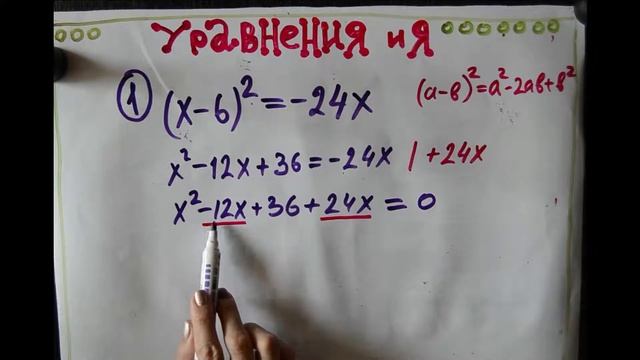 Уравнения и Я
① (x-6)² = -24x
(a-b)² = a²-2ab+b²
x²-12x+36 = -24x | +24x
x²-12x+36+24x = 0